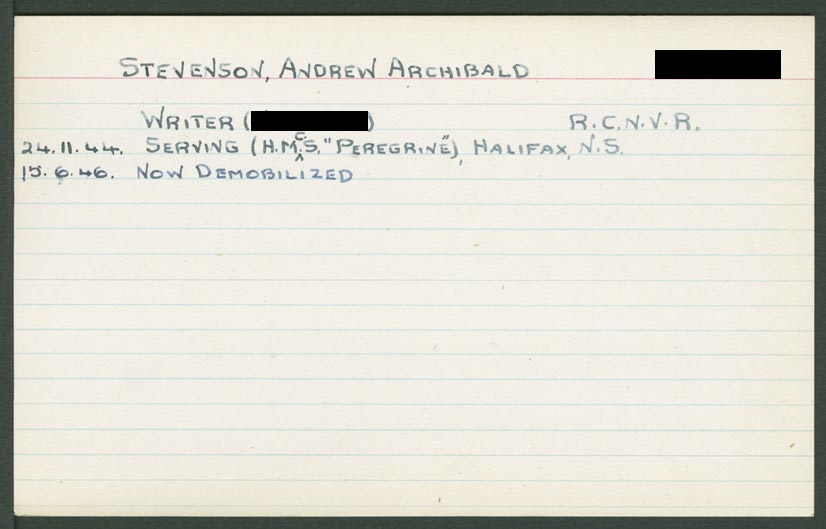 STEVENSON, ANDREW ARCHIBALD
WRITER ( ) R.C.N.V.R.
24.11.44. SERVING (H.M.C.S. "PEREGRINE"), HALIFAX, N.S.
15.6.46. NOW DEMOBILIZED